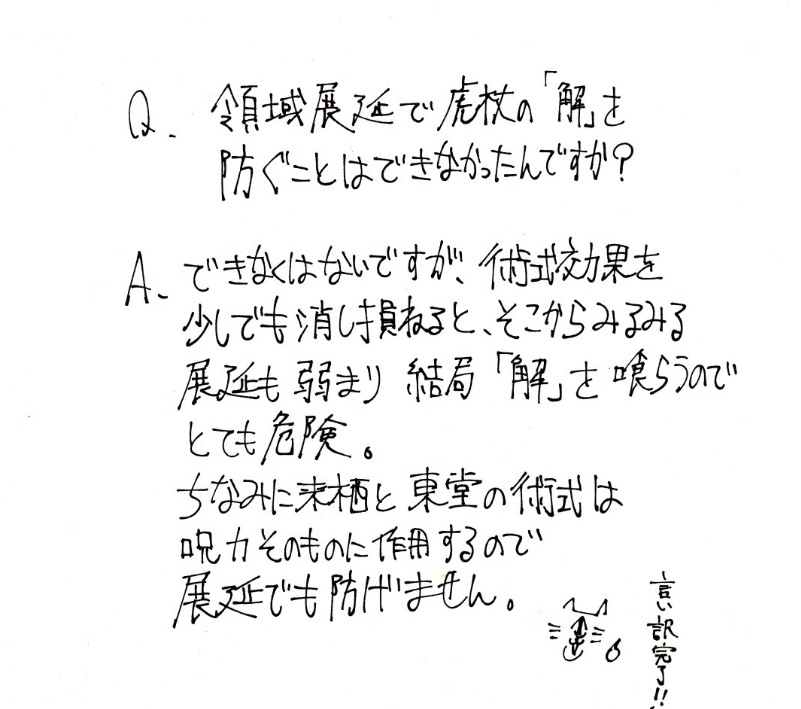 Q. 領域展延で虎杖の「解」を
防ぐことはできなかったんですか？
A. できなくはないですが、術式効果を
少しでも消し損ねると、そこからみるみる
展延も弱まり 結局「解」を喰らうので
とても危険。
ちなみに来栖と東堂の術式は
呪力そのものに作用するので
展延でも防げません。
言い訳完了!!